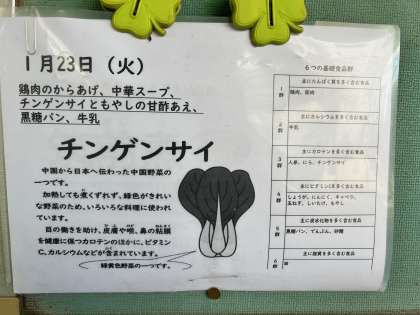 1月23日(火)
鶏肉のからあげ、中華スープ、
チンゲンサイともやしの甘酢あえ、
黒糖パン、牛乳
チンゲンサイ
中国から日本へ伝わった中国野菜の
一つです。
加熱しても煮くずれず、緑色がきれい
な野菜のため、いろいろな料理に使われ
ています。
目の働きを助け、皮膚や喉、鼻の粘膜
を健康に保つカロテンのほかに、ビタミン
C、カルシウムなどが含まれています。
緑黄色野菜の一つです。
6つの基礎食品群
1群
主にたんぱく質を多く含む食品
鶏肉、豚肉
2群
主にカルシウムを多く含む食品
牛乳
3群
主にカロテンを多く含む食品
人参、にら、チンゲンサイ
4群
主にビタミンCを多く含む食品
しょうが、にんにく、キャベツ、
玉ねぎ、しいたけ、もやし
5群
主に炭水化物を多く含む食品
黒糖パン、でんぷん、砂糖
6群
主に脂質を多く含む食品
油